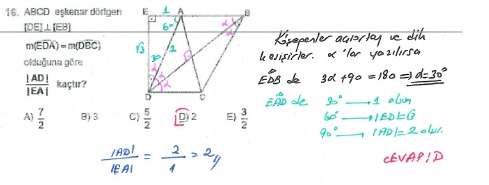 16. ABCD eşkenar dörtgen
[DE] ⊥ [EB]
m(EDA) = m(DBC)
olduğuna göre
|AD|
|EA| kaçtır?
A) 7/2 B) 3 C) 5/2 D) 2 E) 3/2
E 1 A B
60°
√3 2
30°
α α
α α
D C
|AD|/|EA| = 2/1 = 2//
Köşegenler açıortay ve dik
kesişirler. α'lar yazılırsa
EDB de 3α+90=180 ⇒ α=30°
EAD de 30° → 1 olsun
60° → |ED|=√3
90° → |AD|=2 olur.
CEVAP: D